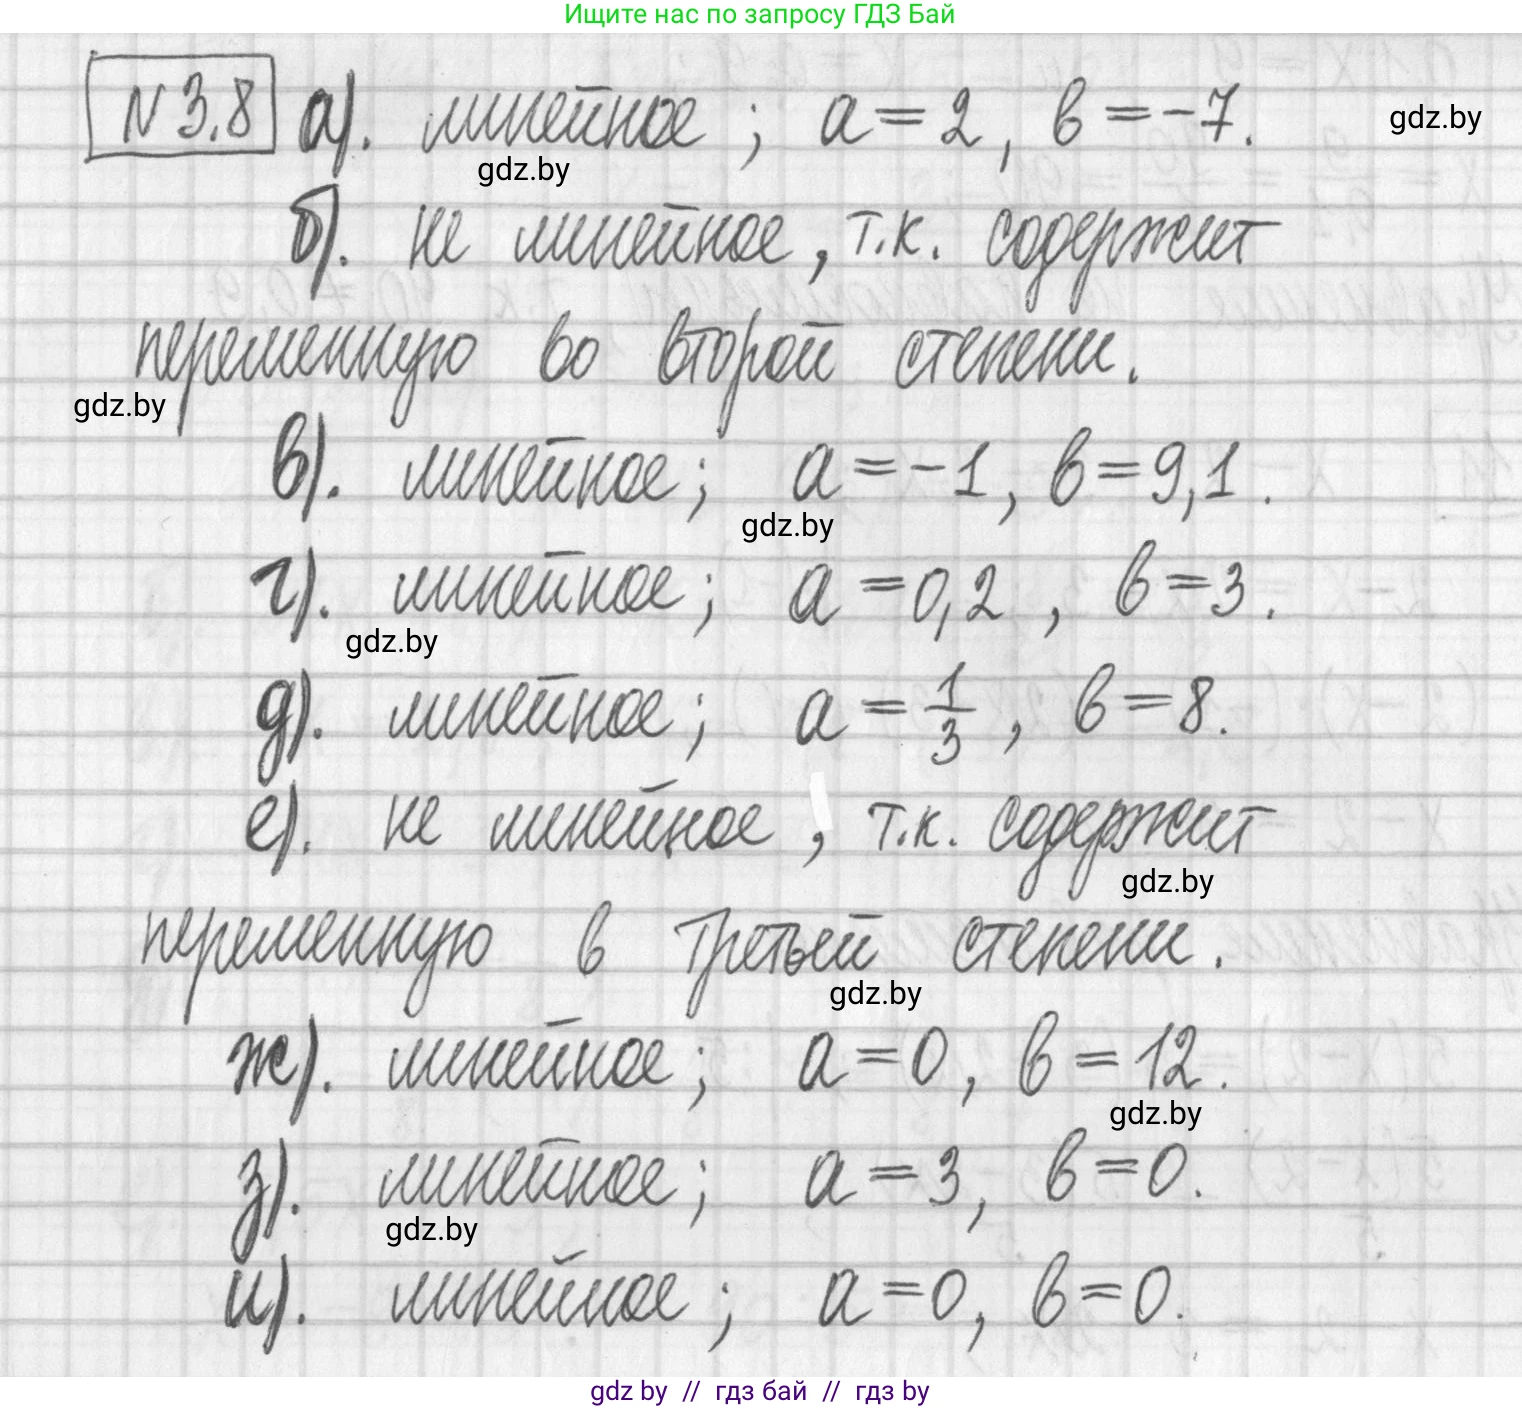 Ищите нас по запросу ГДЗ Бай
N 3.8 а). линейное; a = 2, b = -7.
gdz.by
gdz.by
б). не линейное, т.к. содержит
переменную во второй степени.
gdz.by
в). линейное; a = -1, b = 9,1.
gdz.by
г). линейное; a = 0,2, b = 3.
gdz.by
д). линейное; a = 1/3, b = 8.
е). не линейное, т.к. содержит
gdz.by
переменную в третьей степени.
gdz.by
ж). линейное; a = 0, b = 12.
gdz.by
з). линейное; a = 3, b = 0.
gdz.by
и). линейное; a = 0, b = 0.
gdz by // гдз бай // гдз by